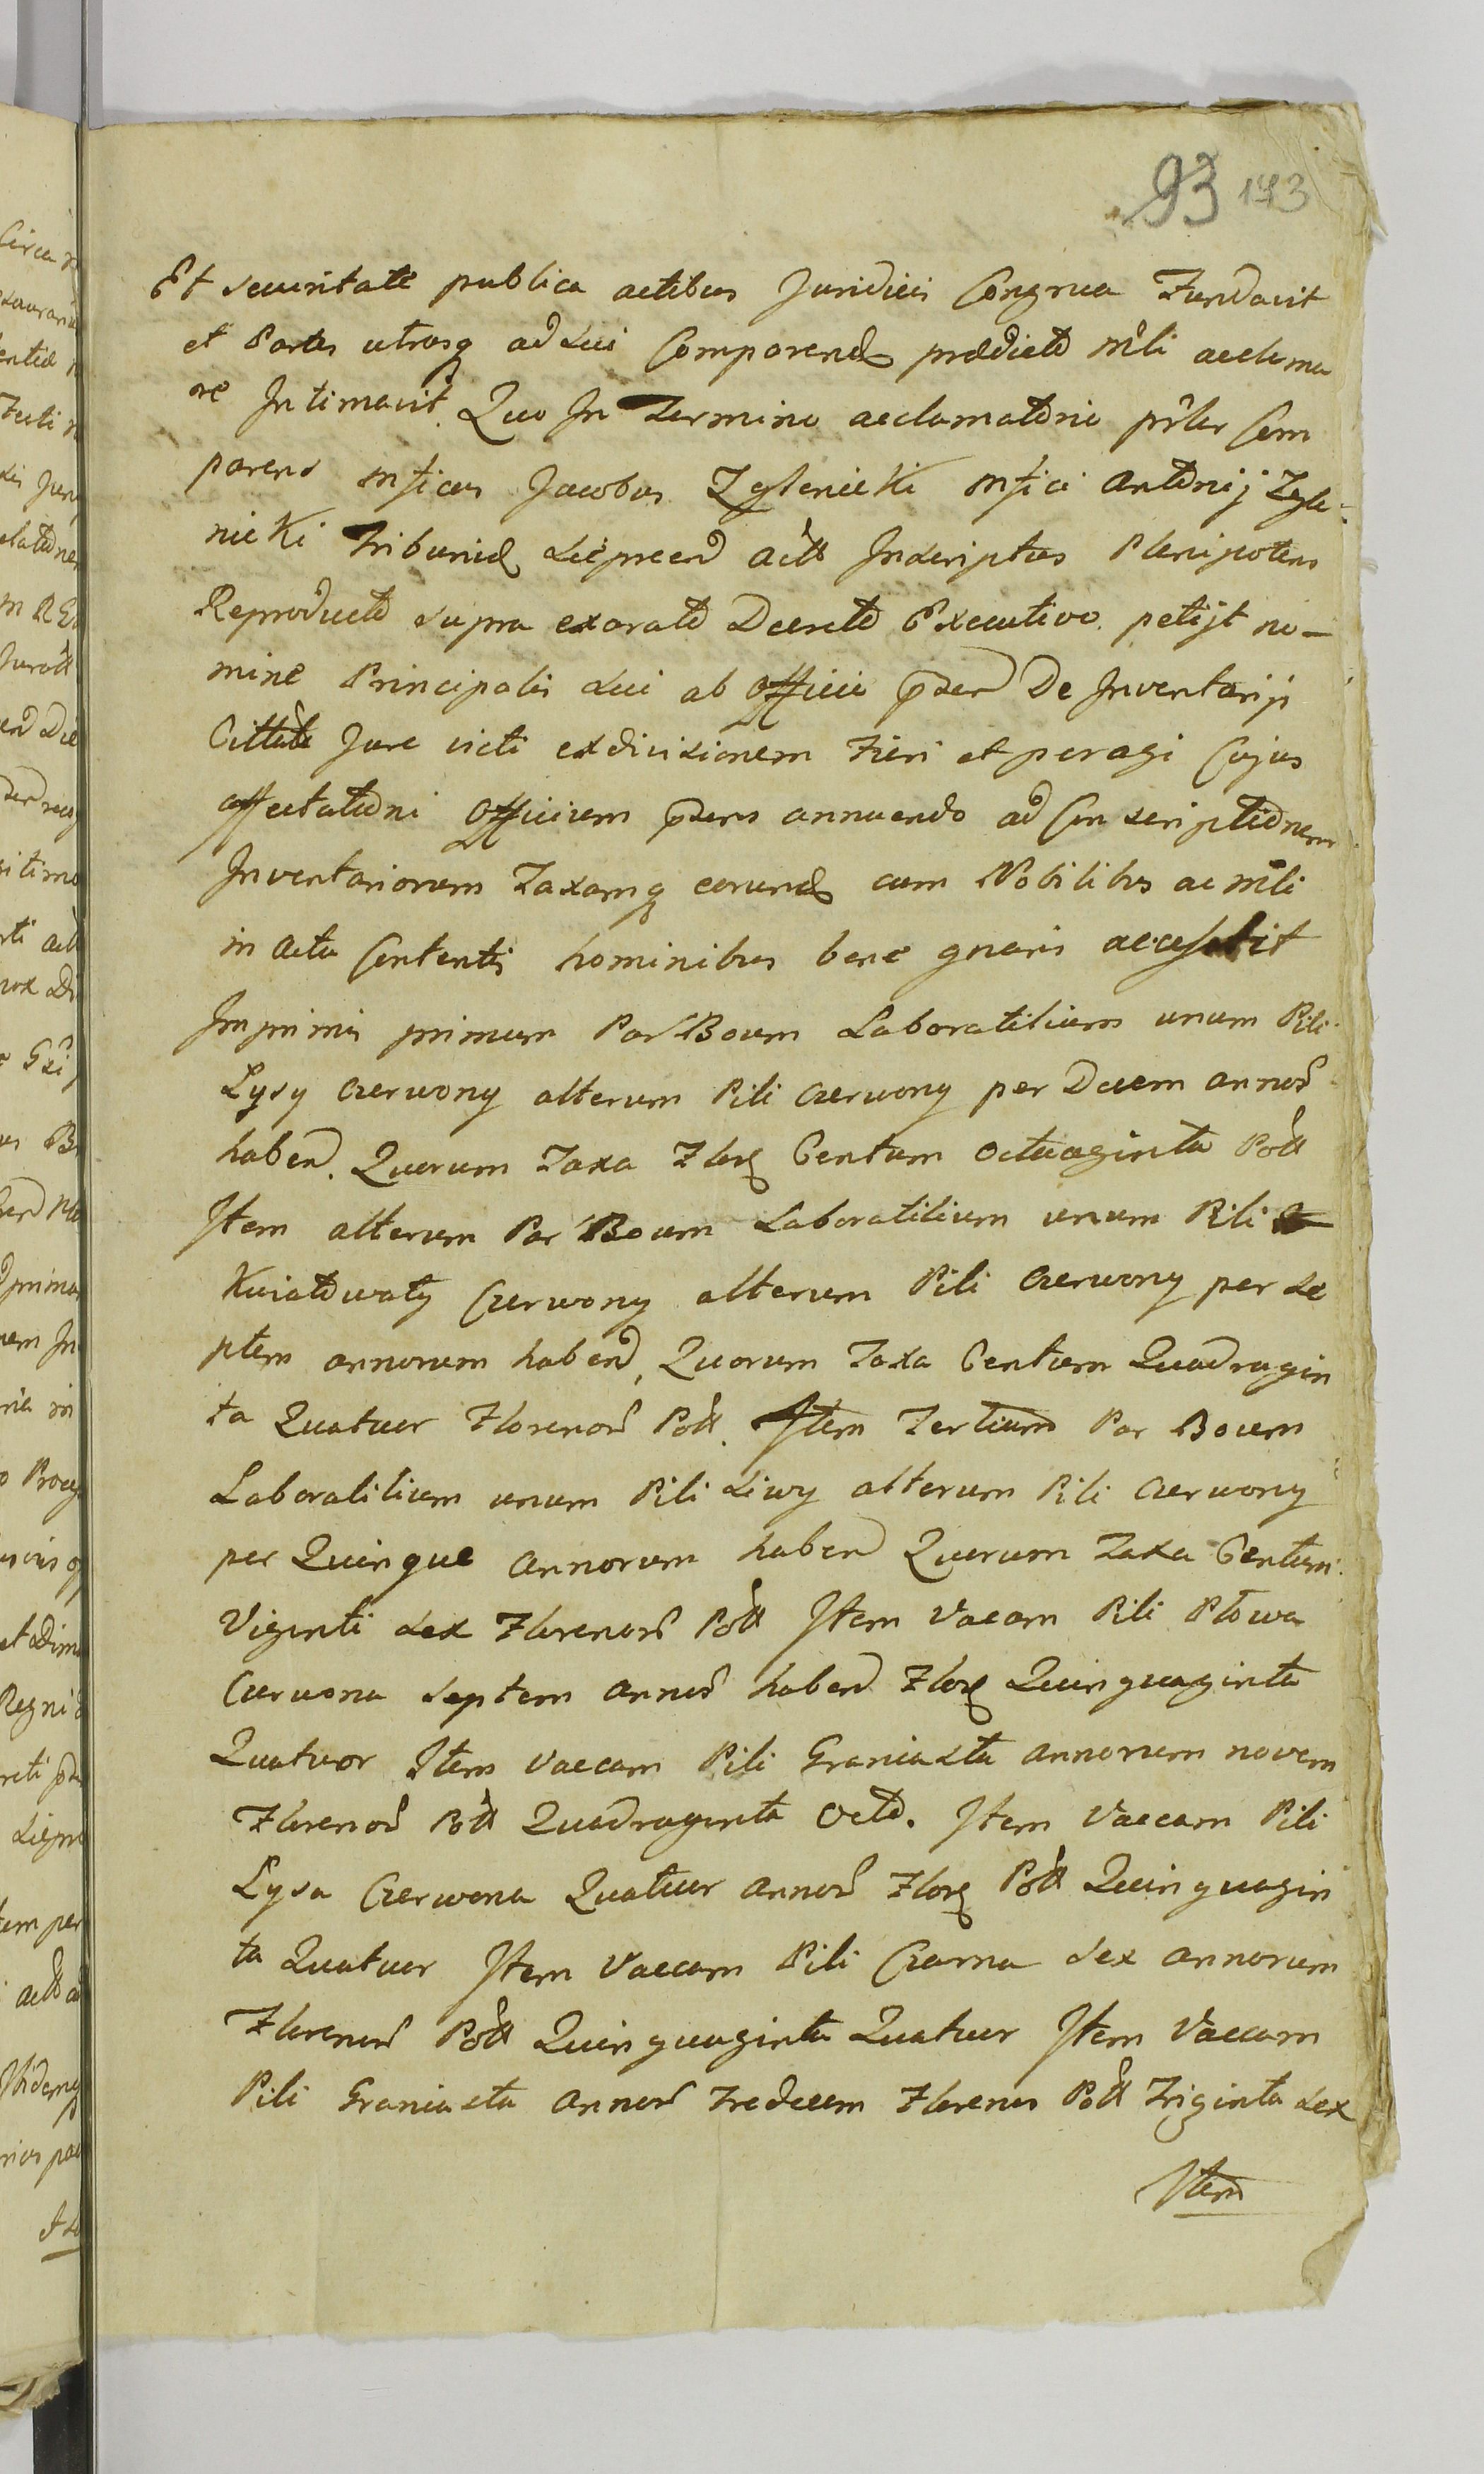 93 173
Et securitate publica actibus Juridicis Congrua Fundavit
et Partes utrasq ad sui Comparend prædicto mli acclama
re Intimavit. Quo In Termino acclamatorio pñter Com
parens mficus Jacobus Zglenicki mfici Antonij Zgle-
nicki Tribunid Actt Inscriptus Plenipotens
Reproducto supra exarato Decreto Executivo petijt no-
mine Principalis sui ab Officio De Inventarij
Jure victi exdivisionem Fieri et peragi Cujus
affectationi Officium annuendo ad Conscriptionem
Inventariorum Taxamq eorund cum Nobilibus ac mli
in actu Contentis hominibus bene gnaris accessit
Imprimis primum Par Boum Laboratilium unum Pili
Lysy czerwony alterum Pili czerwony per Decem annor
haben. Quorum Taxa Flor Centum octuaginta Poll
Item alterum Par Boum Laboratilium unum Pili
Kwiatowaty Czerwony alterum Pili czerwony per se
ptem annorum haben, Quorum Taxa Centum Quadragin
ta Quatuor Florenor Poll. Item Tertium Par Boum
Laboratilium unum Pili siwy alterum Pili czerwony
per Quinque annorum haben Quorum Taxa Centum
Viginti sex Florenor Poll Item Vacam Pili Płowa
Czerwona septem annor haben Flor Quinquaginta
Quatuor Item Vaccam Pili Graniasta annorum novem
Florenor Poll Quadraginta Octo. Item Vaccam Pili
Lysa Czerwona Quatuor annor Flor Poll Quinquagin
ta Quatuor Item Vaccam Pili Czarna sex annorum
Florenor Poll Quinquaginta Quatuor Item Vaccam
Pili Graniasta annor Tredecem Florenos Poll Triginta sex
Item